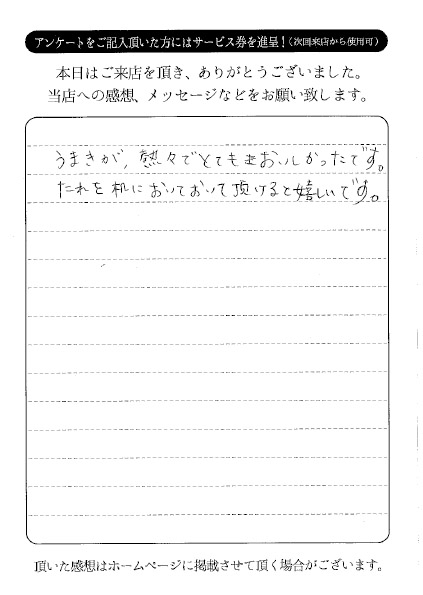 アンケートをご記入頂いた方にはサービス券を進呈！（次回来店から使用可）
本日はご来店を頂き、ありがとうございました。
当店への感想、メッセージなどをお願い致します。
うまきが、熱々でとてもおいしかったです。
たれを机においておいて頂けると嬉しいです。
頂いた感想はホームページに掲載させて頂く場合がございます。